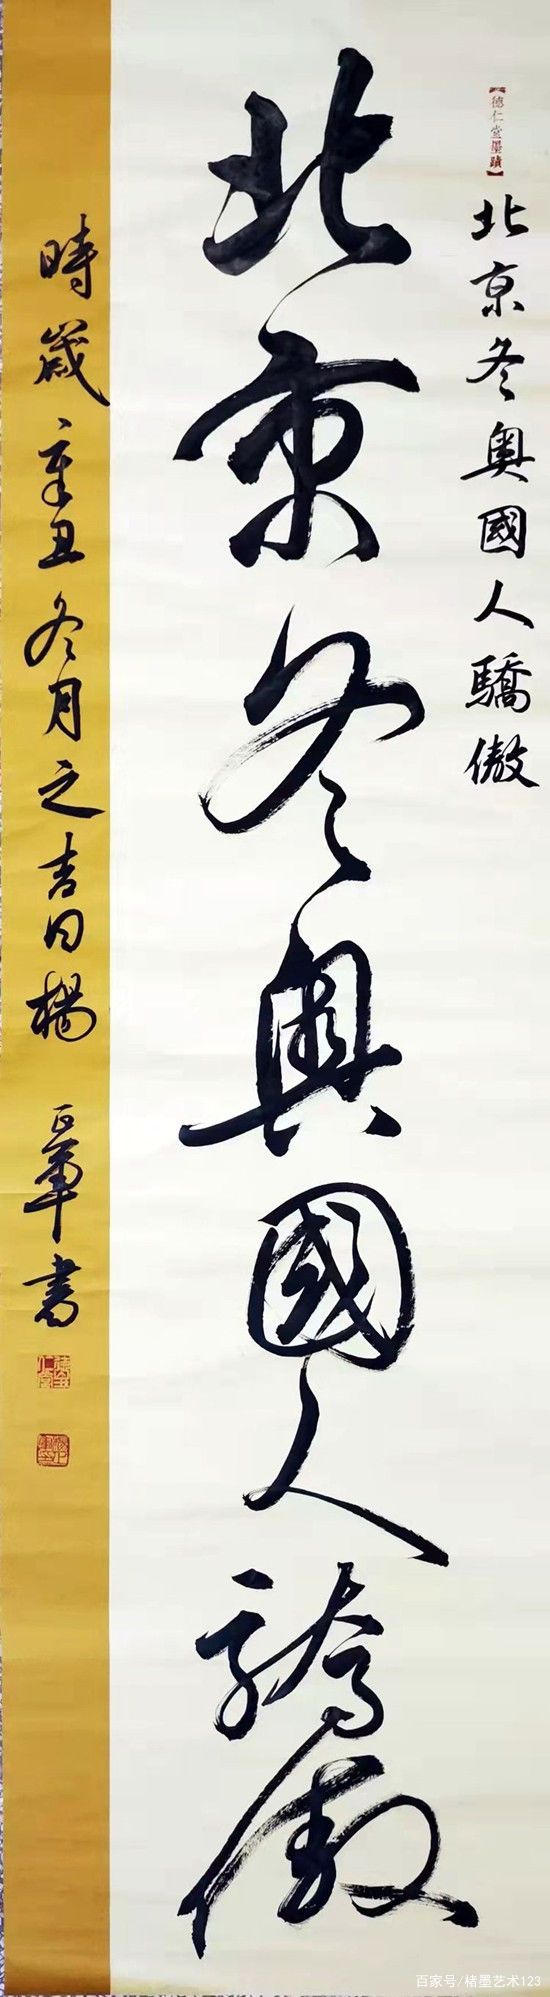 【德仁堂墨蹟】
北京冬奧國人驕傲
北京冬奧國人驕傲
時歲辛丑冬月之吉日楊
正軍書
百家号/楮墨艺术123